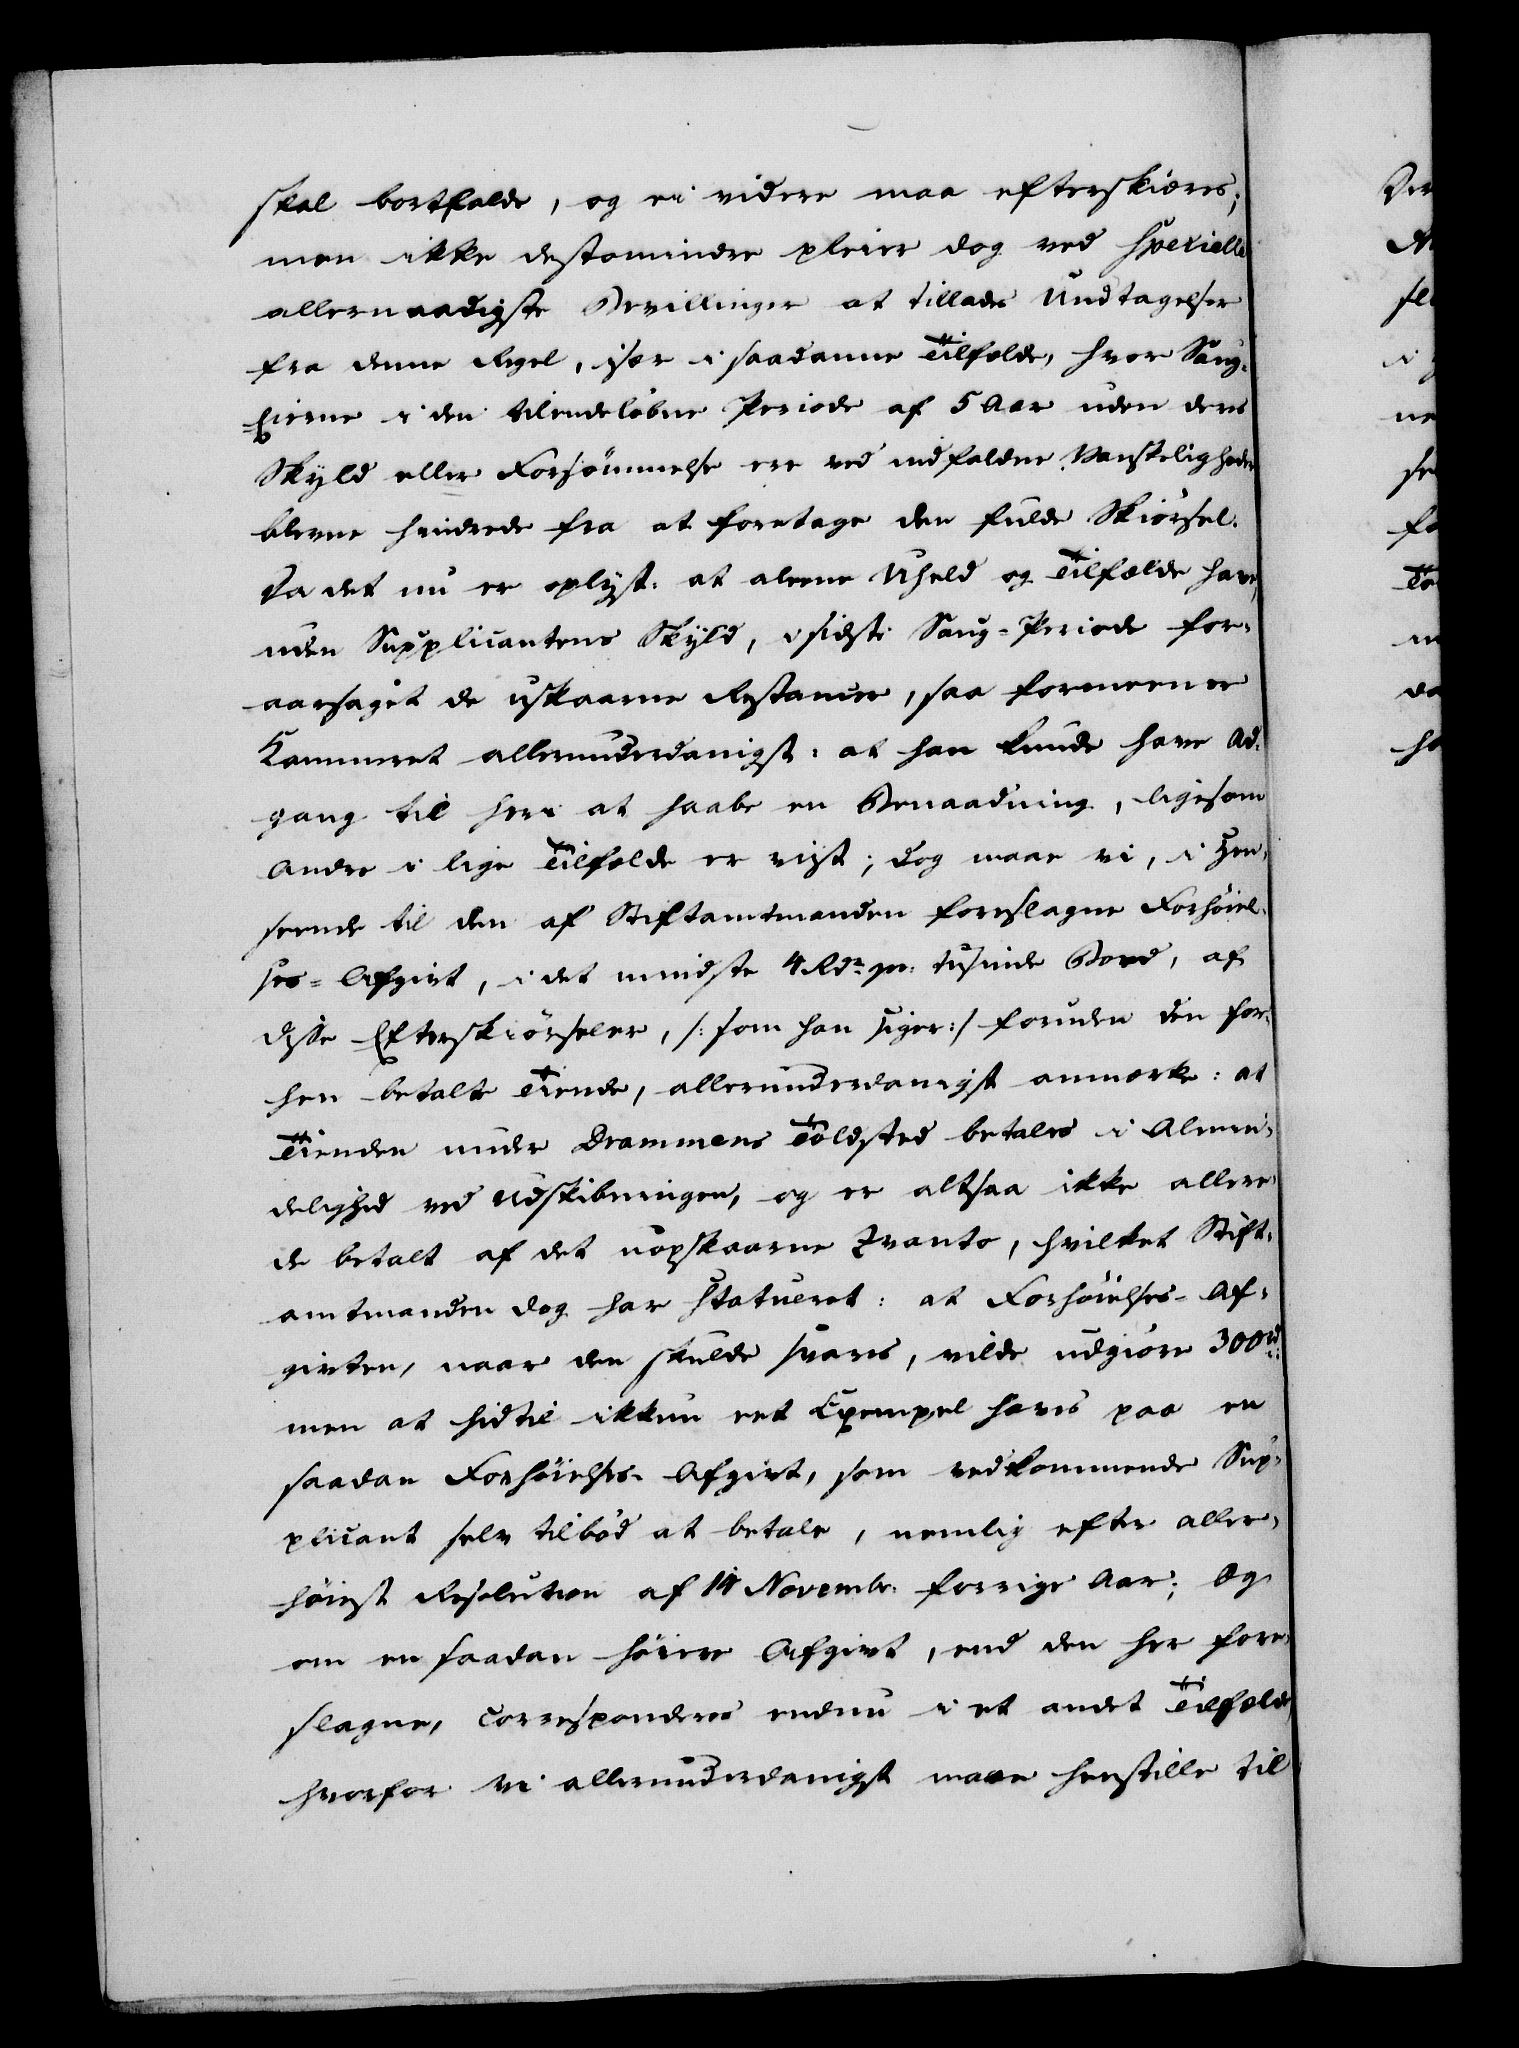 skal bortfalde, og ei videre maa efterskiæres;
men ikke destomindre pleier dog ved specielle
allernaadigste Bevillinger at tillades Undtagelser
fra denne Regel, især i saadanne Tilfælde, hvor Saug-
Eierne i den tilendeløbne Periode af 5 Aar uden deres
Skyld eller Forsømmelse ere ved indfaldne Vanskeligheder
blevne hindrede fra at foretage den fulde Skiørsel.
Da det nu er oplyst: at aleene Uheld og Tilfælde have,
uden Supplicantens Skyld, i sidste Saug-Periode for-
aarsaget de uskaarne Restancer, saa formeener
Kammeret allerunderdanigst: at han kunde have Ad-
gang til heri at haabe en Benaadning, ligesom
Andre i lige Tilfælde er viist; dog maae vi, i Hen-
seende til den af Stiftamtmanden foreslagne Forhøiel-
ses-Afgivt, i det mindste 4 Rdr. pr. tusinde Bord, af
disse Efterskiørseler, /: som han siger :/ foruden den for-
hen betalte Tiende, allerunderdanigst anmærke: at
Tienden under Drammens Toldsted betales i Almin-
delighed ved Udskibningen, og er altsaa ikke allere-
de betalt af det uopskaarne Qvanto, hvilket Stift-
amtmanden dog har statueret: at Forhøielses-Af-
givten, naar den skulde svares, vilde udgiøre 300 rd.
men at hidtil ikkun eet Exempel haves paa en
saadan Forhøielses-Afgivt, som vedkommende Sup-
plicant selv tilbød at betale, nemlig efter aller-
høiest Resolution af 14 Novembr. forrige Aar; Og
om en saadan høiere Afgivt, end den her fore-
slagne, corresponderes endnu i et andet Tilfælde,
hvorfor vi allerunderdanigst maae henstille til